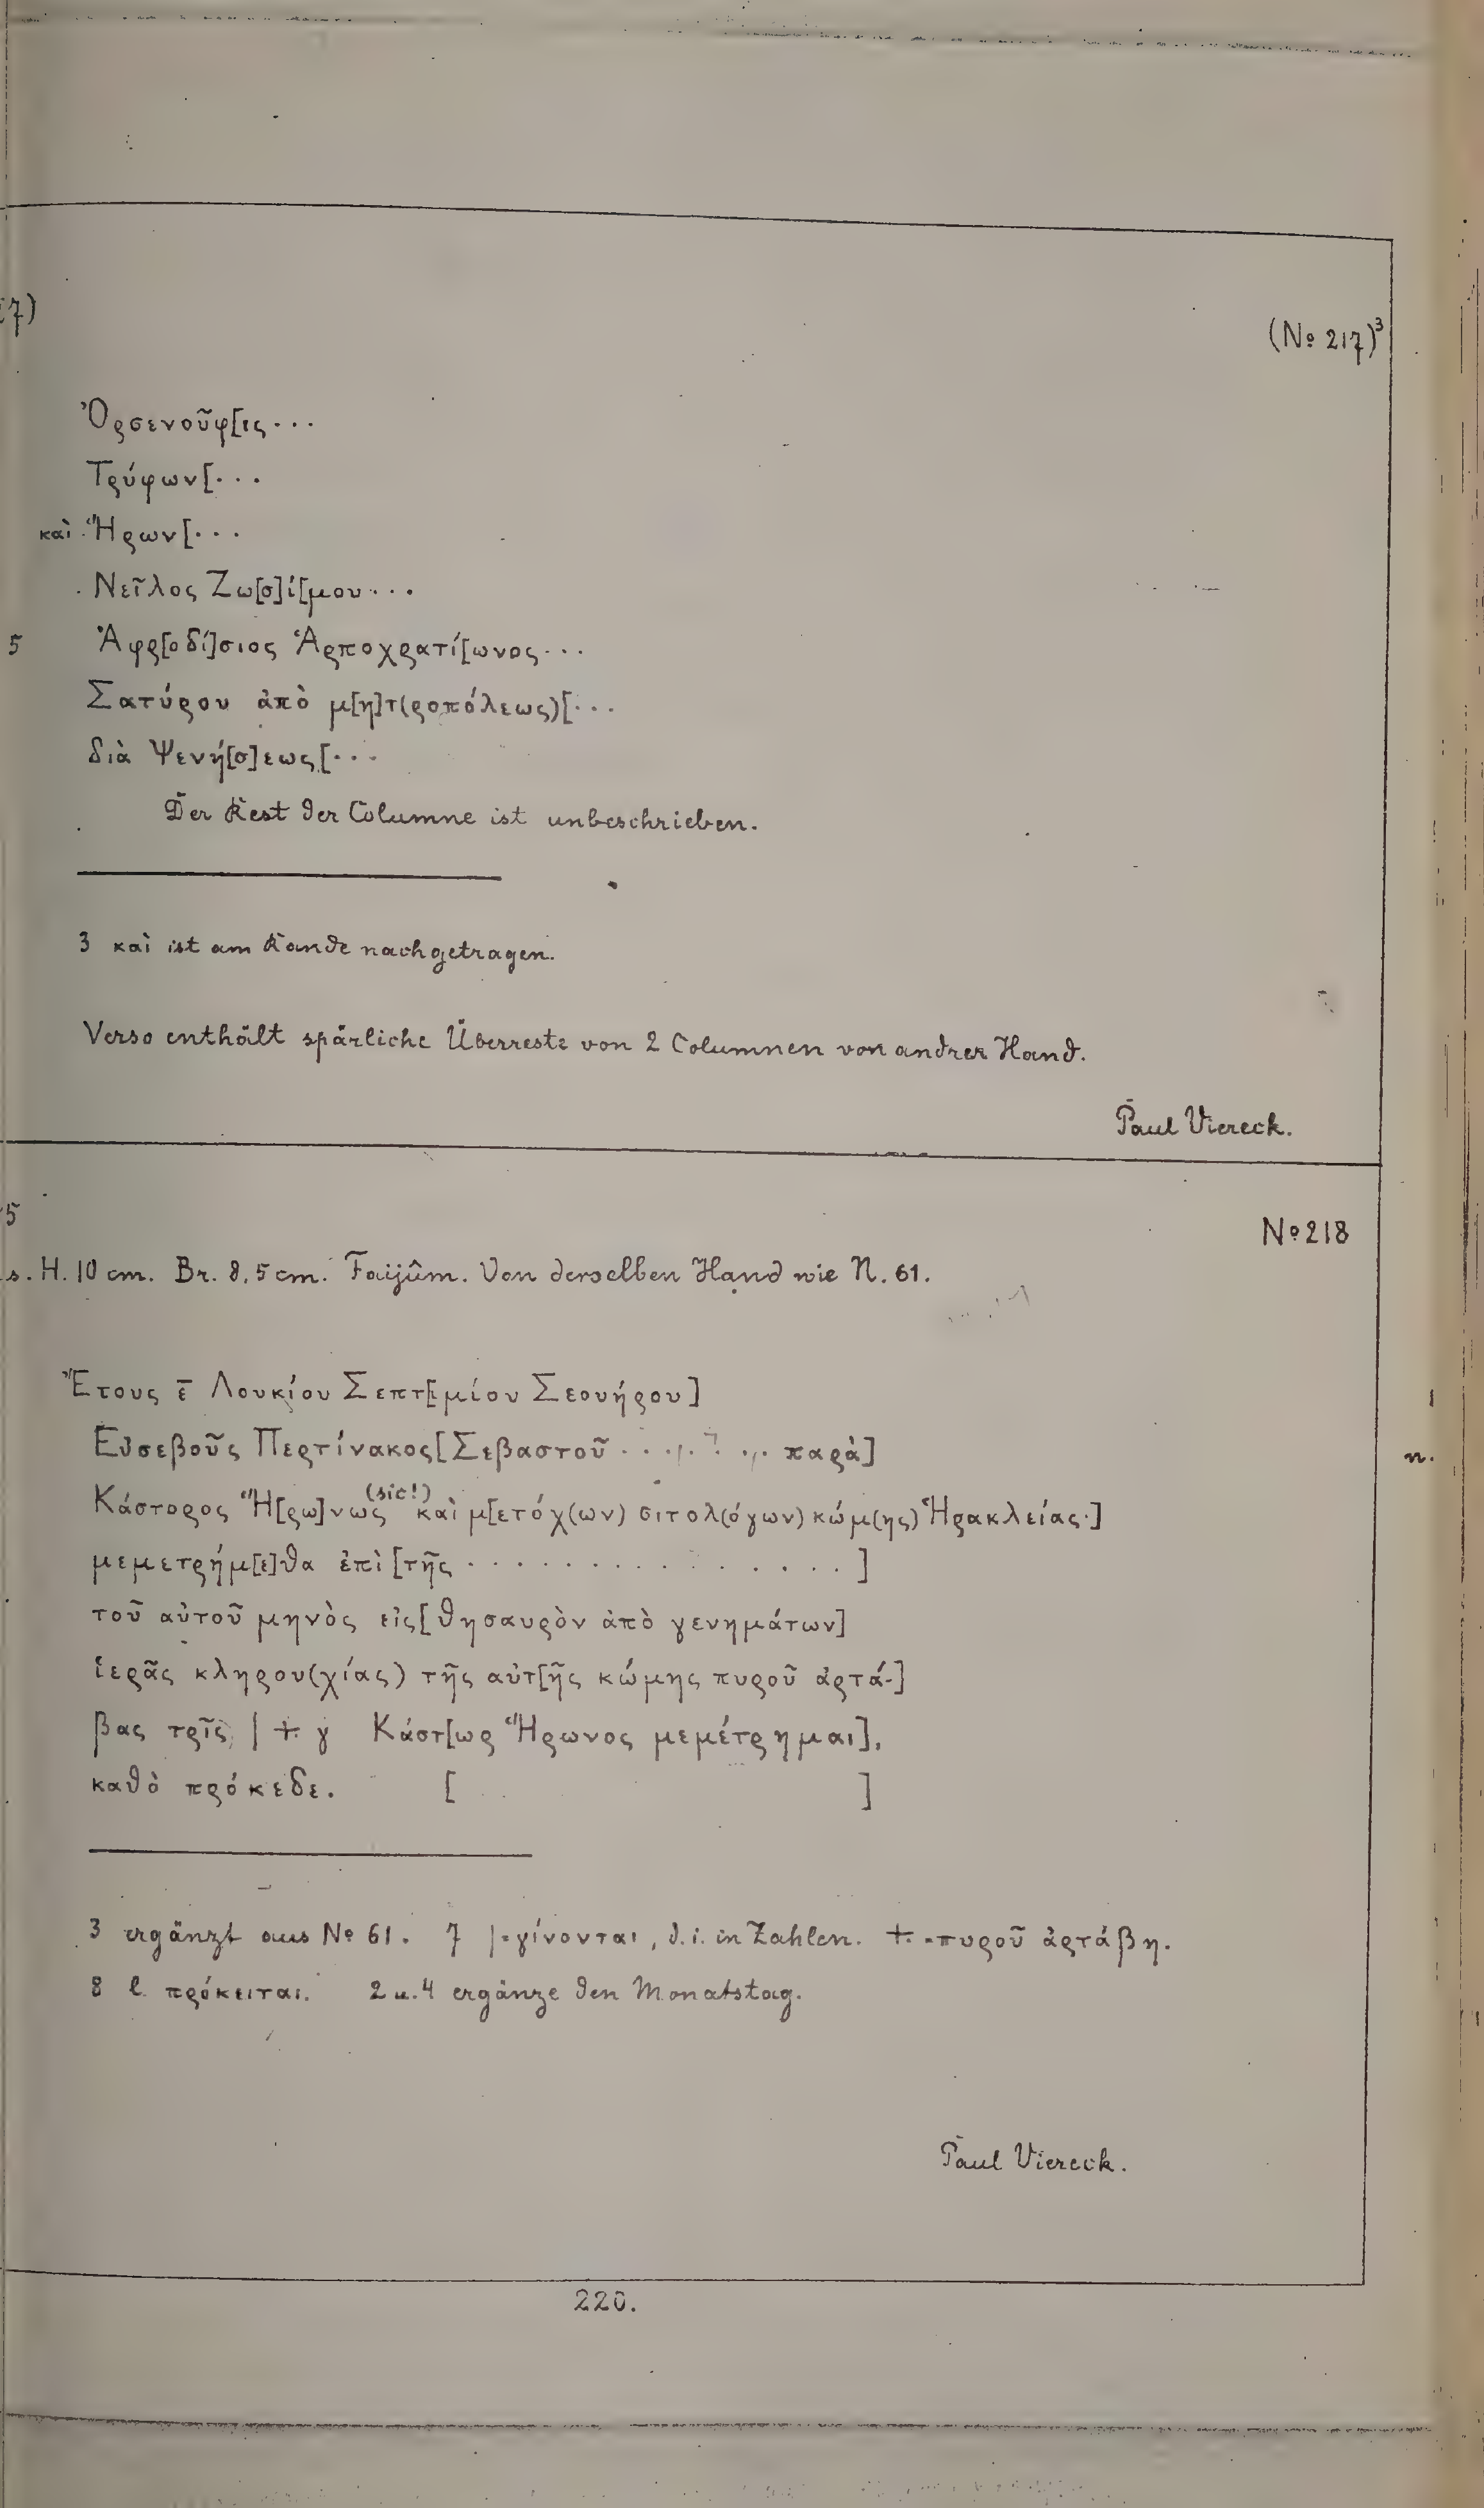 (№ 217)³
Ὀρσενοῦφ[ις...
Τρύφων[...
καὶ Ἥρων[...
Νεῖλος Ζω[σ]ί[μου...
5 Ἀφρ[οδί]σιος Ἁρποχρατί[ωνος...
Σατύρου ἀπὸ μ[η]τ(ροπόλεως)[...
διὰ Ψενή[σ]εως[...
Der Rest der Columne ist unbeschrieben.
3 καὶ ist am Rande nachgetragen.
Verso enthält spärliche Überreste von 2 Columnen von andrer Hand.
Paul Viereck.
№ 218
H. 10 cm. Br. 8,5 cm. Faijûm. Von derselben Hand wie N. 61.
Ἔτους ε̄ Λουκίου Σεπτ[ιμίου Σεουήρου]
Εὐσεβοῦς Περτίνακος[Σεβαστοῦ ....... παρὰ]
Κάστορος Ἥ[ρω]νως (sic!) καὶ μ[ετόχ(ων) σιτολ(όγων) κώμ(ης) Ἡρακλείας·]
μεμετρήμ[ε]θα ἐπὶ [τῆς ..............]
τοῦ αὐτοῦ μηνὸς εἰς[θησαυρὸν ἀπὸ γενημάτων]
ἱερᾶς κληρου(χίας) τῆς αὐτ[ῆς κώμης πυροῦ ἀρτά-]
βας τρῖς | +. γ Κάστ[ωρ Ἥρωνος μεμέτρημαι],
καθὸ πρόκεδε. [ ]
3 ergänzt aus № 61. 7 |=γίνονται, d. i. in Zahlen. +.=πυροῦ ἀρτάβη.
8 l. πρόκειται. 2 u. 4 ergänze den Monatstag.
Paul Viereck.
220.